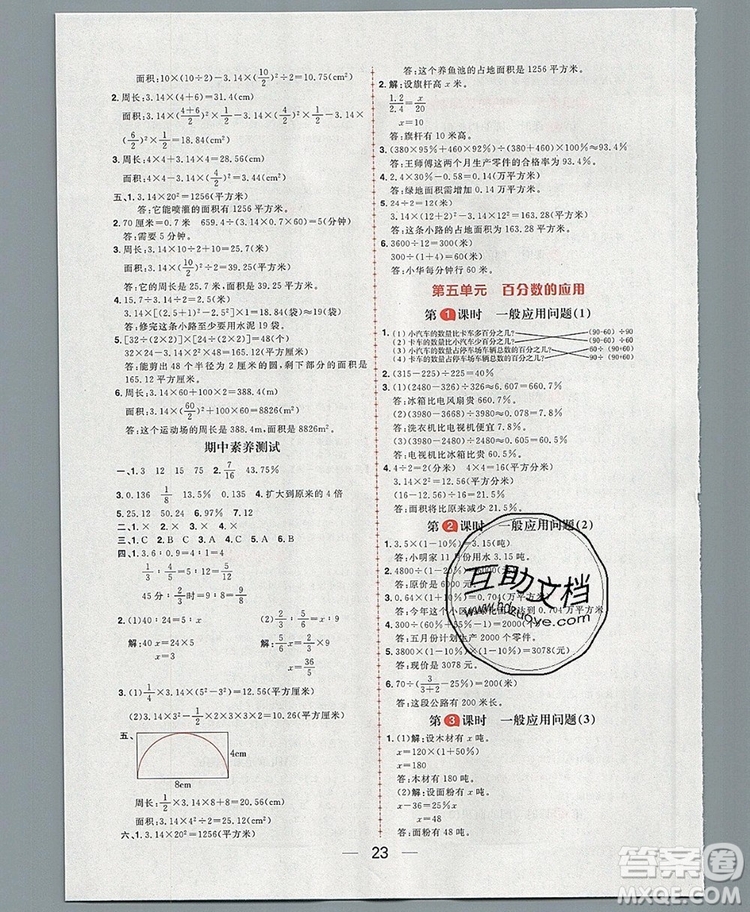 面积:10×(10÷2)-3.14×(10/2)²÷2=10.75(cm²)
2.周长:3.14×(4+6)=31.4(cm)
面积:3.14×((4+6)/2)²×1/2-3.14×(4/2)²×1/2+3.14×
(6/2)²×1/2=18.84(cm²)
3.周长:4×4+3.14×4=28.56(cm)
面积:4×4+3.14×(4/2)²=28.56(cm²)
五、1.3.14×20²=1256(平方米)
答:它能喷灌的面积有1256平方米。
2.70厘米=0.7米 659.4÷(3.14×0.7×60)=5(分钟)
答:需要5分钟。
3.周长:3.14×10÷2+10=25.7(米)
面积:3.14×(10/2)²÷2=39.25(平方米)
4.15.7÷3.14÷2=2.5(米)
3.14×[(2.5+1)²-2.5²]×1=18.84(袋)≈19(袋)
答:修完这条小路至少要用水泥19袋。
5.[32÷(2×2)]×[24÷(2×2)]=48(个)
32×24-3.14×2²×48=165.12(平方厘米)
答:能剪出48个半径为2厘米的圆,剩下部分的面积是
165.12平方厘米。
6.周长:3.14×60+100×2=388.4(m)
面积:3.14×(60/2)²+100×60=8826(m²)
答:这个运动场的周长是388.4m,面积是8826m²。
期中素养测试
一、1.3 12 15 75 2.7/16 43.75%
3.0.136 1/8 12.5% 4.扩大到原来的4倍
5.0.985 6.7/8 7.97% 8.12
二、1.C 2.B C 3.A 4.A 5.C
四、1.0.13∶0.39=1∶3
1/3∶4/5=5∶12=5/12
45分∶2/3时=9∶8=9/8
2.(1)40∶24=5∶x (2)2/3∶1/5=x∶5/6
解:40x=24×5 解:1/5x=2/3×5/6
x=3 x=36/5
3.(1)1/4×3.14×(5²-3²)=12.56(平方厘米)
(2)3.14×5²×1/2=39.25(平方厘米)
五、
4cm
8cm
周长:1/2×3.14×8+8=20.56(厘米)
面积:1/2×3.14×(8/2)²=25.12(平方厘米)
六、1.3.14×20²=1256(平方米)
答:这个养鱼池的占地面积是1256平方米。
2.解:设旗杆高x米。
1.2/2.4=x/20
x=10
答:旗杆有10米高。
3.(380×95%+460×92%)÷(380+460)×100%≈93.4%
答:王师傅这两个月生产零件的合格率为93.4%。
4.2.4÷30%-0.15÷30%=0.58(平方米)
答:绿地面积需增加0.58平方米。
5.24÷2=12(米)
3.14×(12+2)²-3.14×12²=163.28(平方米)
答:这条小路的占地面积为163.28平方米。
6.3600÷12=300(个)
300÷(1+4)=60(个)
答:小华每分钟行60个。
第五单元 百分数的应用
第1课时 一般应用问题(1)
1.(1)小汽车的数量比卡车多百分之几? (90-60)÷90
(2)卡车的数量比小汽车少百分之几? (90-60)÷60
(3)小汽车的数量占停车场车辆总数的百分之几? 60÷(90+60)
(4)卡车的数量占停车场车辆总数的百分之几? 90÷(90+60)
2.(315-225)÷225=40%
3.(1)(2480-326)÷326≈660.7%
答:冰箱比电风扇贵660.7%。
(2)(2680-2480)÷2680≈7.8%
答:洗衣机比电视机便宜7.8%。
(3)(2680-2480)÷2480≈7.8%
答:电视机比冰箱贵7.8%。
4.4÷2=2(平方米) 4×4=16(平方米)
3.14×2²=12.56(平方米)
(16-12.56)÷16=21.5%
答:面积将比原来减少21.5%。
第2课时 一般应用问题(2)
1.3.5×(1-10%)=3.15(吨)
答:小明家11月份用水3.15吨。
2.4800÷(1-20%)=6000(元)
答:原价是6000元。
3.0.64×(1+10%)=0.704(万平方米)
4.300÷(1+15%-1)=2000(个)
答:五月份计划生产2000个零件。
5.3800×(1-10%)×(1-10%)=3078(元)
答:现价是3078元。
6.70÷(3/(3+2)-25%)=200(米)
答:这段公路有200米长。
第3课时 一般应用问题(3)
1.(1)解:设木材有x吨。
x=120×(1+50%)
x=180
答:木材有180吨。
(2)解:设面粉有x吨。
x-36=25%x
x=48
答:面粉有48吨。
23
互助文档
www.hdzuoye.com
答案圈
MXQE.COM